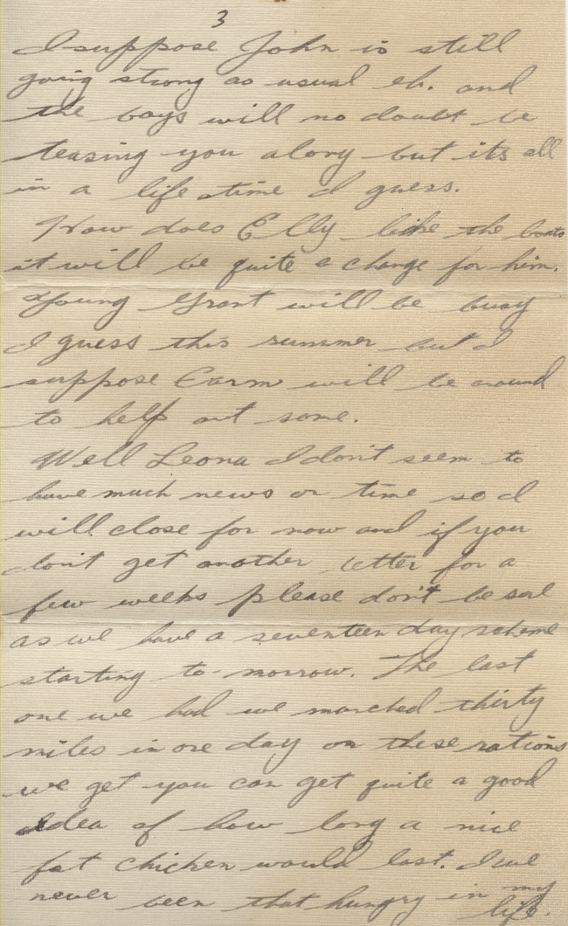 3
I suppose John is still
going strong as usual eh. and
the boys will no doubt be
teasing you along but its all
in a life time I guess.
How does Elly like the boats
it will be quite a change for him.
Young Grant will be busy
I guess this summer but I
suppose Earm will be around
to help out some.
Well Leona I don't seem to
have much news or time so I
will close for now and if you
don't get another letter for a
few weeks please don't be sore
as we have a seventeen day scheme
starting to-morrow. The last
one we had we marched thirty
miles in one day on these rations
we get you can get quite a good
idea of how long a nice
fat chicken would last. I've
never been that hungry in my
life.